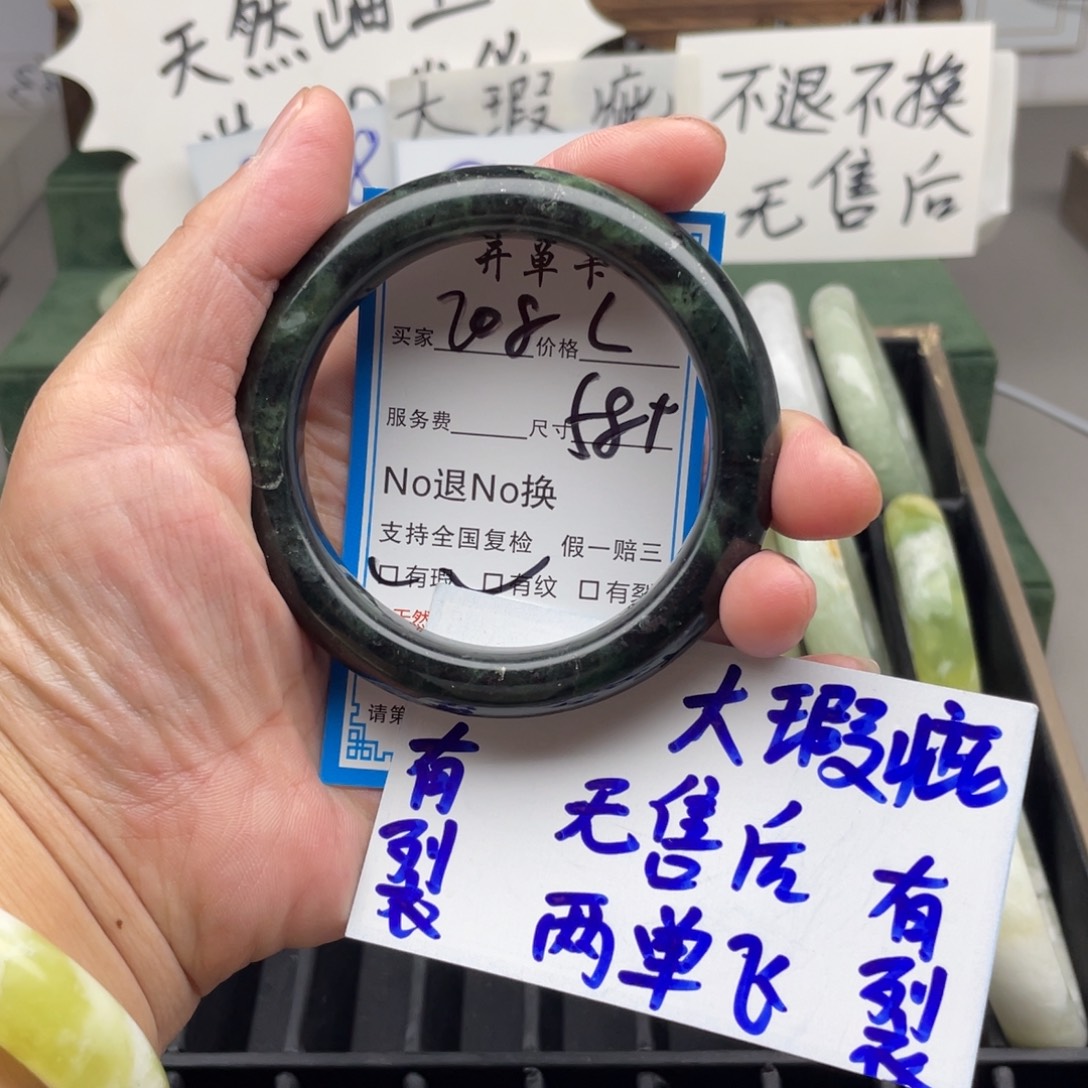 天然岫玉
大瑕疵
不退不换
无售后
8
弃单卡
买家 708 价格 L
服务费 尺寸 58+
No退No换
支持全国复检 假一赔三
口有瑕 口有纹 口有裂
天然
请第
大瑕疵
无售后
两单飞
有裂
有裂